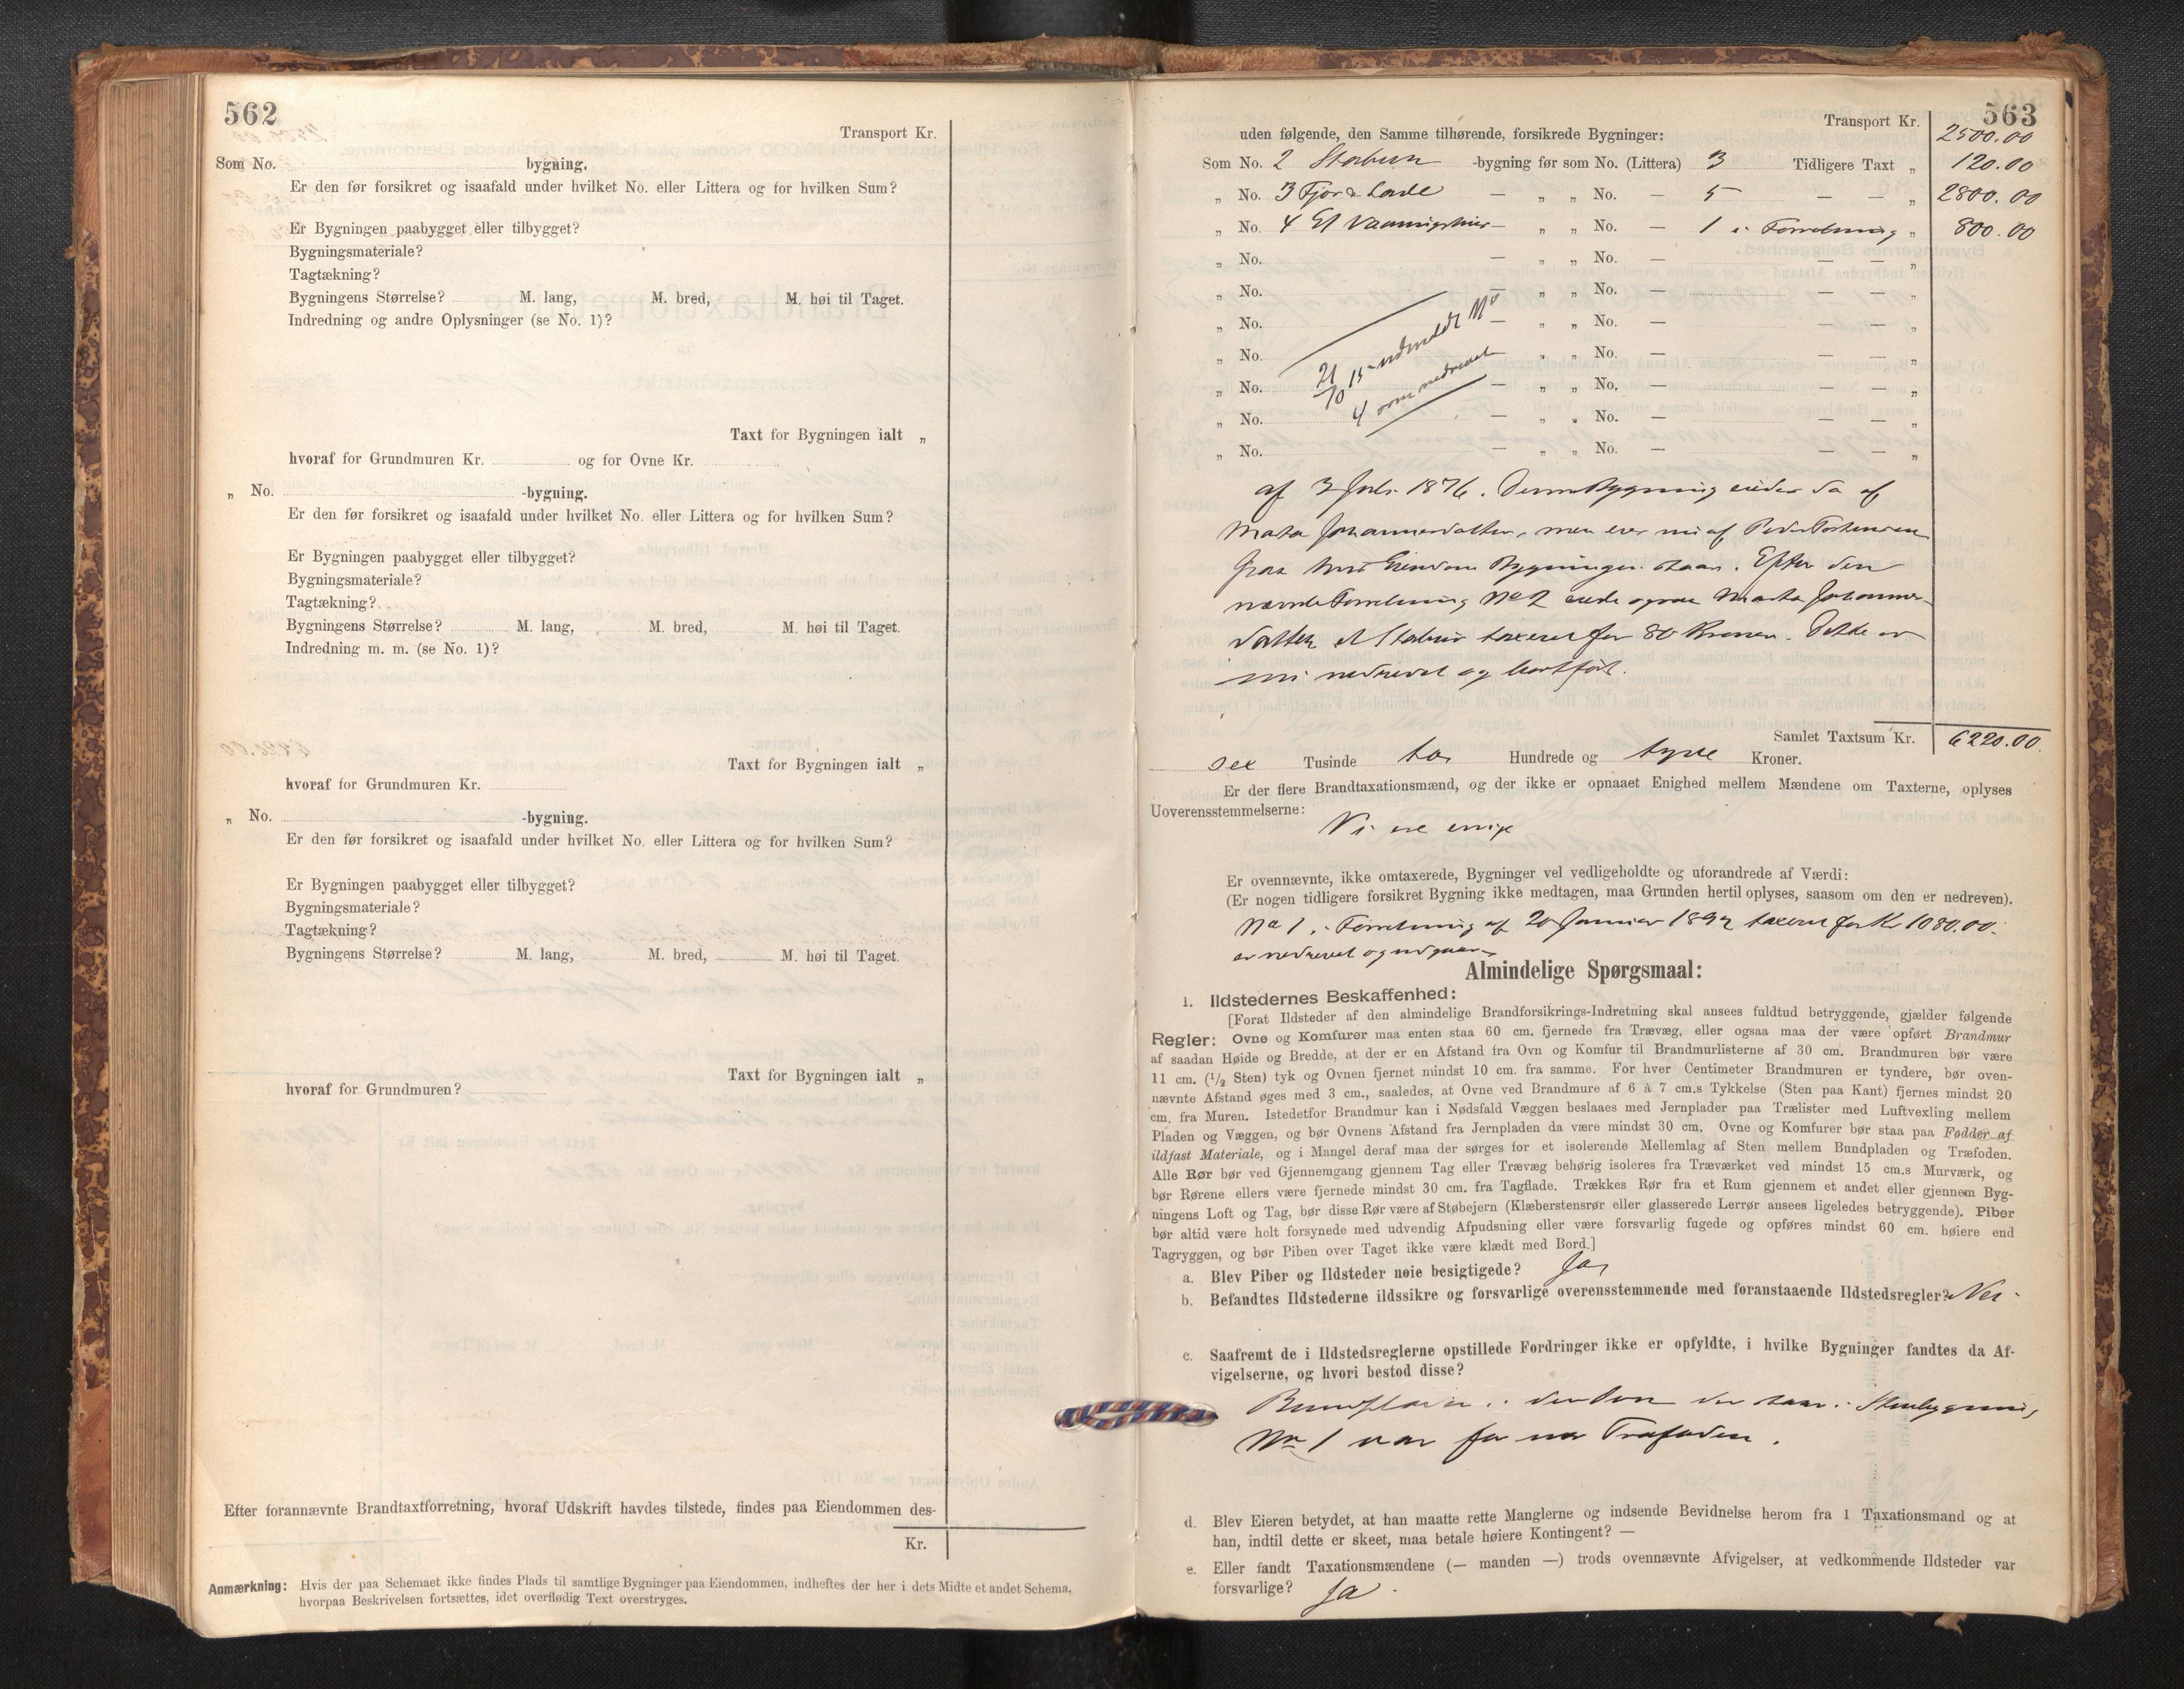 562
Transport Kr.
Som No. bygning.
Er den før forsikret og isaafald under hvilket No. eller Littera og for hvilken Sum?
Er Bygningen paabygget eller tilbygget?
Bygningsmateriale?
Tagtækning?
Bygningens Størrelse? M. lang, M. bred, M. høi til Taget.
Indredning og andre Oplysninger (se No. 1)?
Taxt for Bygningen ialt „
hvoraf for Grundmuren Kr. og for Ovne Kr.
„ No. -bygning.
Er den før forsikret og isaafald under hvilket No. eller Littera og for hvilken Sum?
Er Bygningen paabygget eller tilbygget?
Bygningsmateriale?
Tagtækning?
Bygningens Størrelse? M. lang, M. bred, M. høi til Taget.
Indredning m. m. (se No. 1)?
Taxt for Bygningen ialt „
hvoraf for Grundmuren Kr.
„ No. -bygning.
Er den før forsikret og isaafald under hvilket No. eller Littera og for hvilken Sum?
Er Bygningen paabygget eller tilbygget?
Bygningsmateriale?
Tagtækning?
Bygningens Størrelse? M. lang, M. bred, M. høi til Taget.
Taxt for Bygningen ialt „
hvoraf for Grundmuren?
Efter forannævnte Brandtaxtforretning, hvoraf Udskrift havdes tilstede, findes paa Eiendommen des-
Kr.
Anmærkning: Hvis der paa Schemaet ikke findes Plads til samtlige Bygninger paa Eiendommen, indheftes der her i dets Midte et andet Schema,
hvorpaa Beskrivelsen fortsættes, idet overflødig Text overstryges.
563
Transport Kr. 2500.00
uden følgende, den Samme tilhørende, forsikrede Bygninger:
Som No. 2 Stabur -bygning før som No. (Littera) 3 Tidligere Taxt „ 120.00
„ No. 3 Fjør & Lade — „ „ No. — 5 — — „ 2800.00
„ No. 4 Et Vaaningshus — „ „ No. — 1 i Forretning „ 800.00
„ No. — „ „ No. — — — „
„ No. — „ „ No. — — — „
„ No. — „ „ No. — — — „
„ No. — „ „ No. — — — „
„ No. — „ „ No. — — — „
„ No. — „ „ No. — — — „
„ No. — „ „ No. — — — „
21/10 15 udmeldt No
4 som nedrevet
af 3 Juli 1876. Denne Bygning eiedes da af
Marta Johannesdatter, men eies nu af Peder Torstensen
paa hvis Eiendom Bygningen staar. Efter den
nævnte Forretning No 2 eiede ogsaa Marta Johannes-
datter et Stabur taxeret for 80 Kroner. Dette er
nu nedrevet og bortført.
Samlet Taxtsum Kr. 6220.00.
sex Tusinde to Hundrede og tyve Kroner.
Er der flere Brandtaxationsmænd, og der ikke er opnaaet Enighed mellem Mændene om Taxterne, oplyses
Uoverensstemmelserne:
Vi ere enige
Er ovennævnte, ikke omtaxerede, Bygninger vel vedligeholdte og uforandrede af Værdi:
(Er nogen tidligere forsikret Bygning ikke medtagen, maa Grunden hertil oplyses, saasom om den er nedreven).
No 1 i Forretning af 20 Januar 1892 taxeret for Kr 1080.00.
er nedrevet og udgaar
Almindelige Spørgsmaal:
1. Ildstedernes Beskaffenhed:
[Forat Ildsteder af den almindelige Brandforsikrings-Indretning skal ansees fuldtud betryggende, gjælder følgende
Regler: Ovne og Komfurer maa enten staa 60 cm. fjernede fra Trævæg, eller ogsaa maa der være opført Brandmur
af saadan Høide og Bredde, at der er en Afstand fra Ovn og Komfur til Brandmurlisterne af 30 cm. Brandmuren bør være
11 cm. (1/2 Sten) tyk og Ovnen fjernet mindst 10 cm. fra samme. For hver Centimeter Brandmuren er tyndere, bør oven-
nævnte Afstand øges med 3 cm., saaledes, at Ovne ved Brandmure af 6 à 7 cm.s Tykkelse (Sten paa Kant) fjernes mindst 20
cm. fra Muren. Istedetfor Brandmur kan i Nødsfald Væggen beslaaes med Jernplader paa Trælister med Luftvexling mellem
Pladen og Væggen, og bør Ovnens Afstand fra Jernpladen da være mindst 30 cm. Ovne og Komfurer bør staa paa Fødder af
ildfast Materiale, og i Mangel deraf maa der sørges for et isolerende Mellemlag af Sten mellem Bundpladen og Træfoden.
Alle Rør bør ved Gjennemgang gjennem Tag eller Trævæg behørig isoleres fra Træværket ved mindst 15 cm.s Murværk, og
bør Rørene ellers være fjernede mindst 30 cm. fra Tagflade. Trækkes Rør fra et Rum gjennem et andet eller gjennem Byg-
ningens Loft og Tag, bør disse Rør være af Støbejern (Klæberstensrør eller glasserede Lerrør ansees ligeledes betryggende). Piber
bør altid være helt forsynede med udvendig Afpudsning eller være forsvarlig fugede og opføres mindst 60 cm. høiere end
Tagryggen, og bør Piben over Taget ikke være klædt med Bord.]
a. Blev Piber og Ildsteder nøie besigtigede? Ja,
b. Befandtes Ildstederne ildssikre og forsvarlige overensstemmende med foranstaaende Ildstedsregler? Nei.
c. Saafremt de i Ildstedsreglerne opstillede Fordringer ikke er opfyldte, i hvilke Bygninger fandtes da Af-
vigelserne, og hvori bestod disse?
Bundpladen i den Ovn der staar i Stuebygning
No 1 var for nær Træfoden.
d. Blev Eieren betydet, at han maatte rette Manglerne og indsende Bevidnelse herom fra 1 Taxationsmand og at
han, indtil dette er skeet, maa betale høiere Kontingent? —
e. Eller fandt Taxationsmændene (— manden —) trods ovennævnte Afvigelser, at vedkommende Ildsteder var
forsvarlige? Ja.